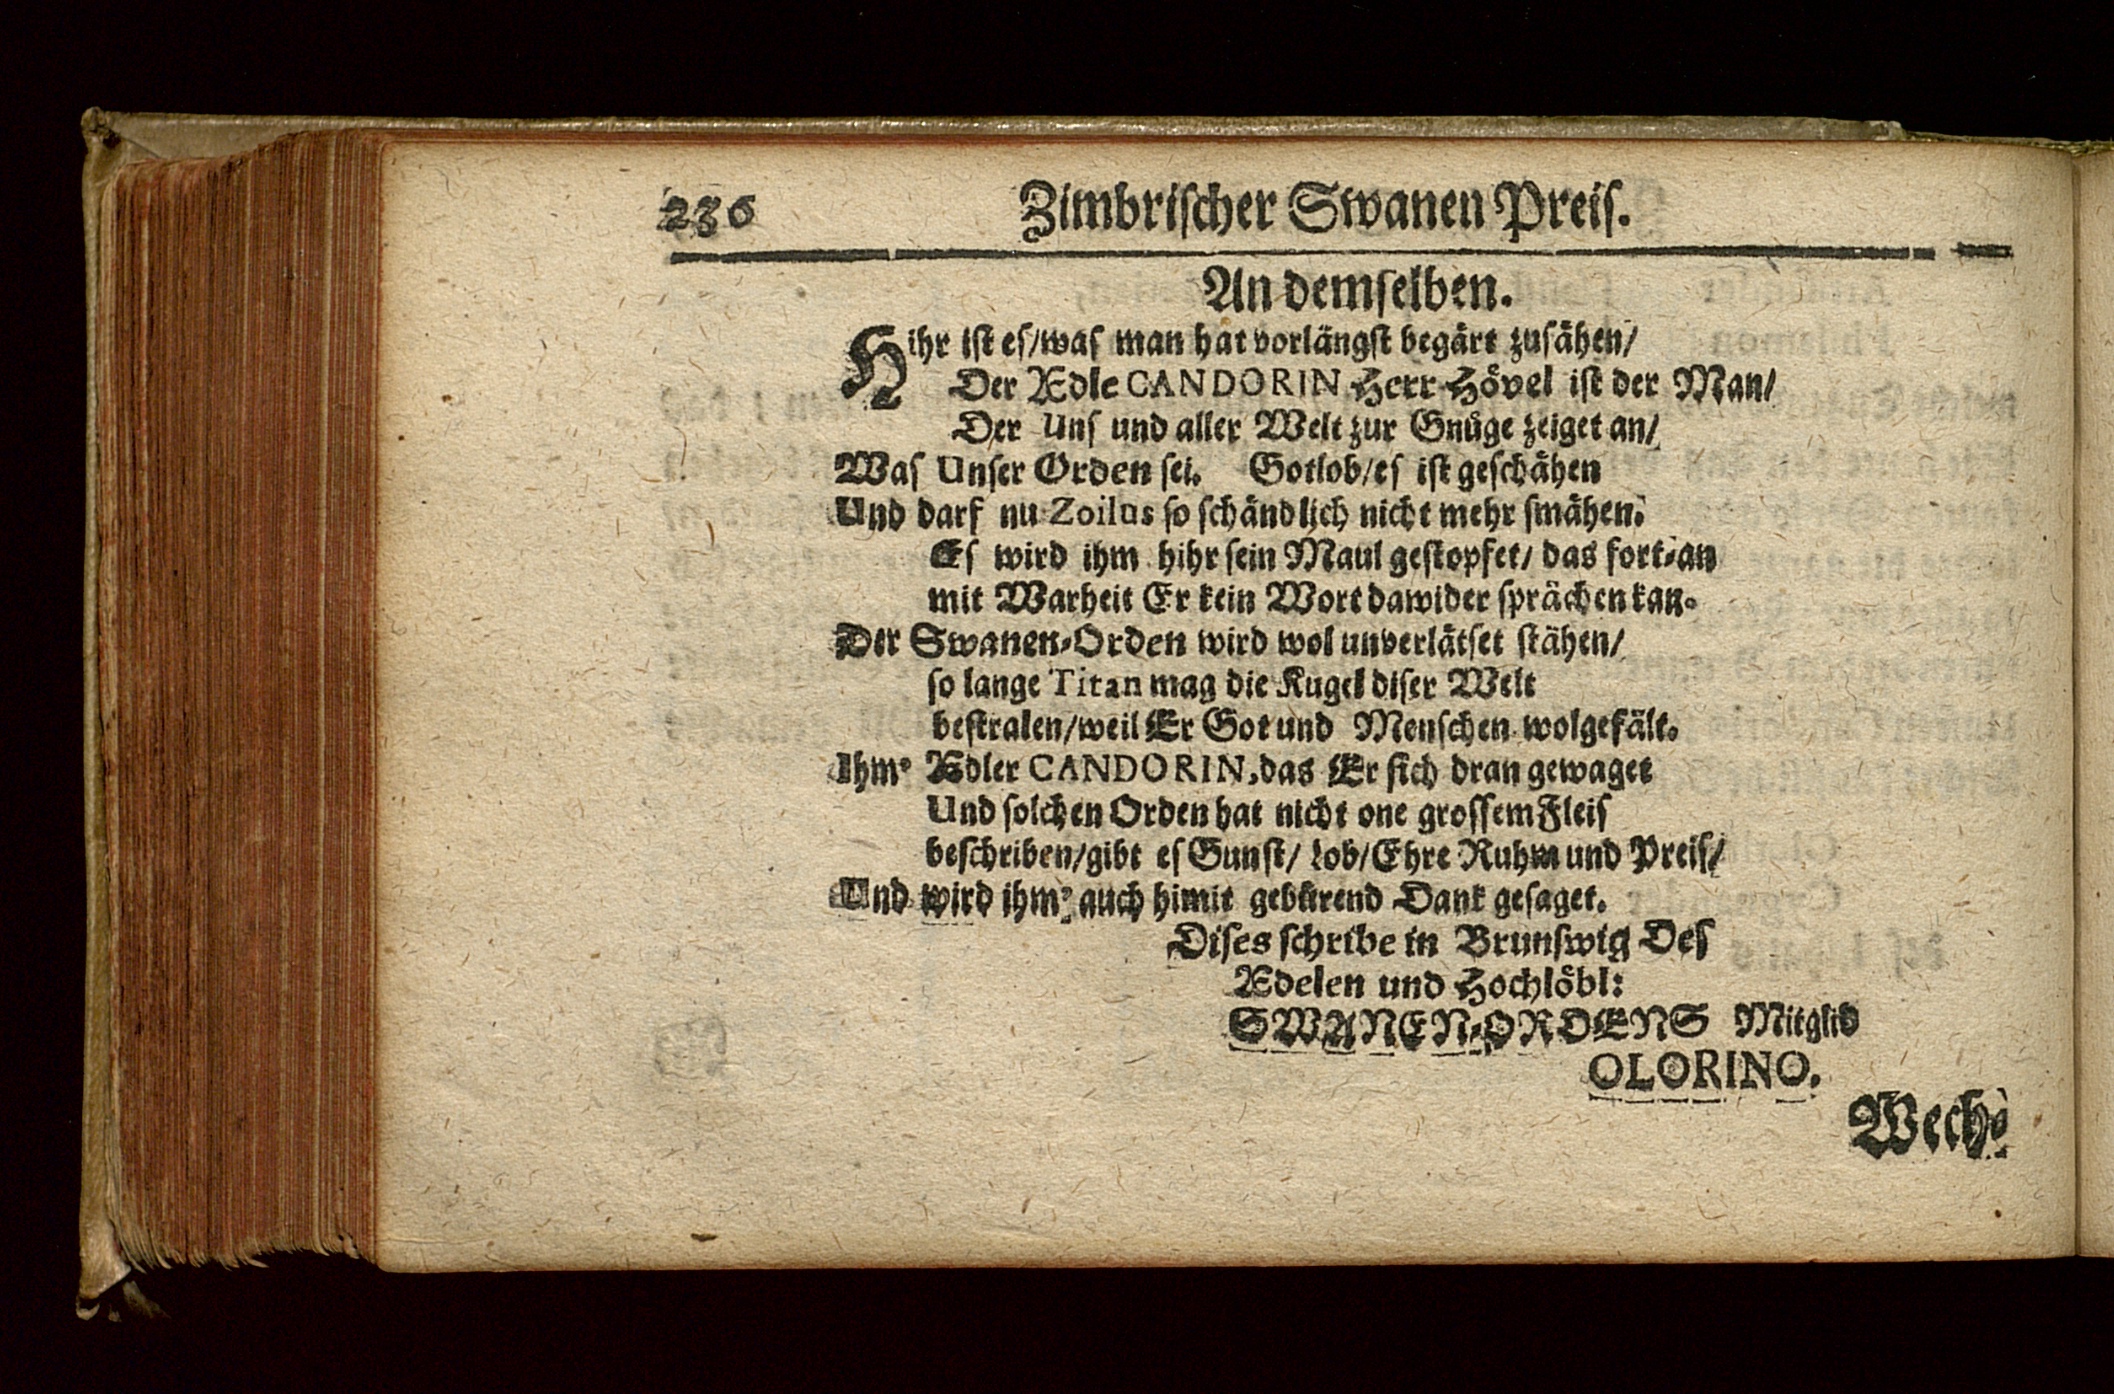 236 Zimbrischer Swanen Preiſ.
An demſelben.
Hihr iſt eſ/waſ man hat vorlängſt begärt zuſähen/
Der Ædle CANDORIN Herr Hövel iſt der Man/
Der Unſ und aller Welt zur Gnüge zeiget an/
Waſ Unſer Orden ſei. Gotlob/eſ iſt geſchähen
Und darf nu Zoilus ſo ſchändlich nicht mehr ſmähen.
Eſ wird ihm hihr ſein Maul geſtopfet/ das fort-an
mit Warheit Er kein Wort dawider ſprächen kan.
Der Swanen-Orden wird wol unverlätſet ſtähen/
ſo lange Titan mag die Kugel diſer Welt
beſtralen/weil Er Got und Menſchen wolgefält.
Ihm' Ædler CANDORIN, das Er ſich dran gewaget
Und ſolchen Orden hat nicht one groſſem Fleiſ
beſchriben/gibt eſ Gunſt/ Lob/Ehre Ruhm und Preiſ/
Und wird ihm' auch himit gebürend Dank geſaget.
Diſes ſchribe in Brunſwig Deſ
Ædelen und Hochlöbl:
SWANEN-ORDENS Mitglid
OLORINO.
Wech-